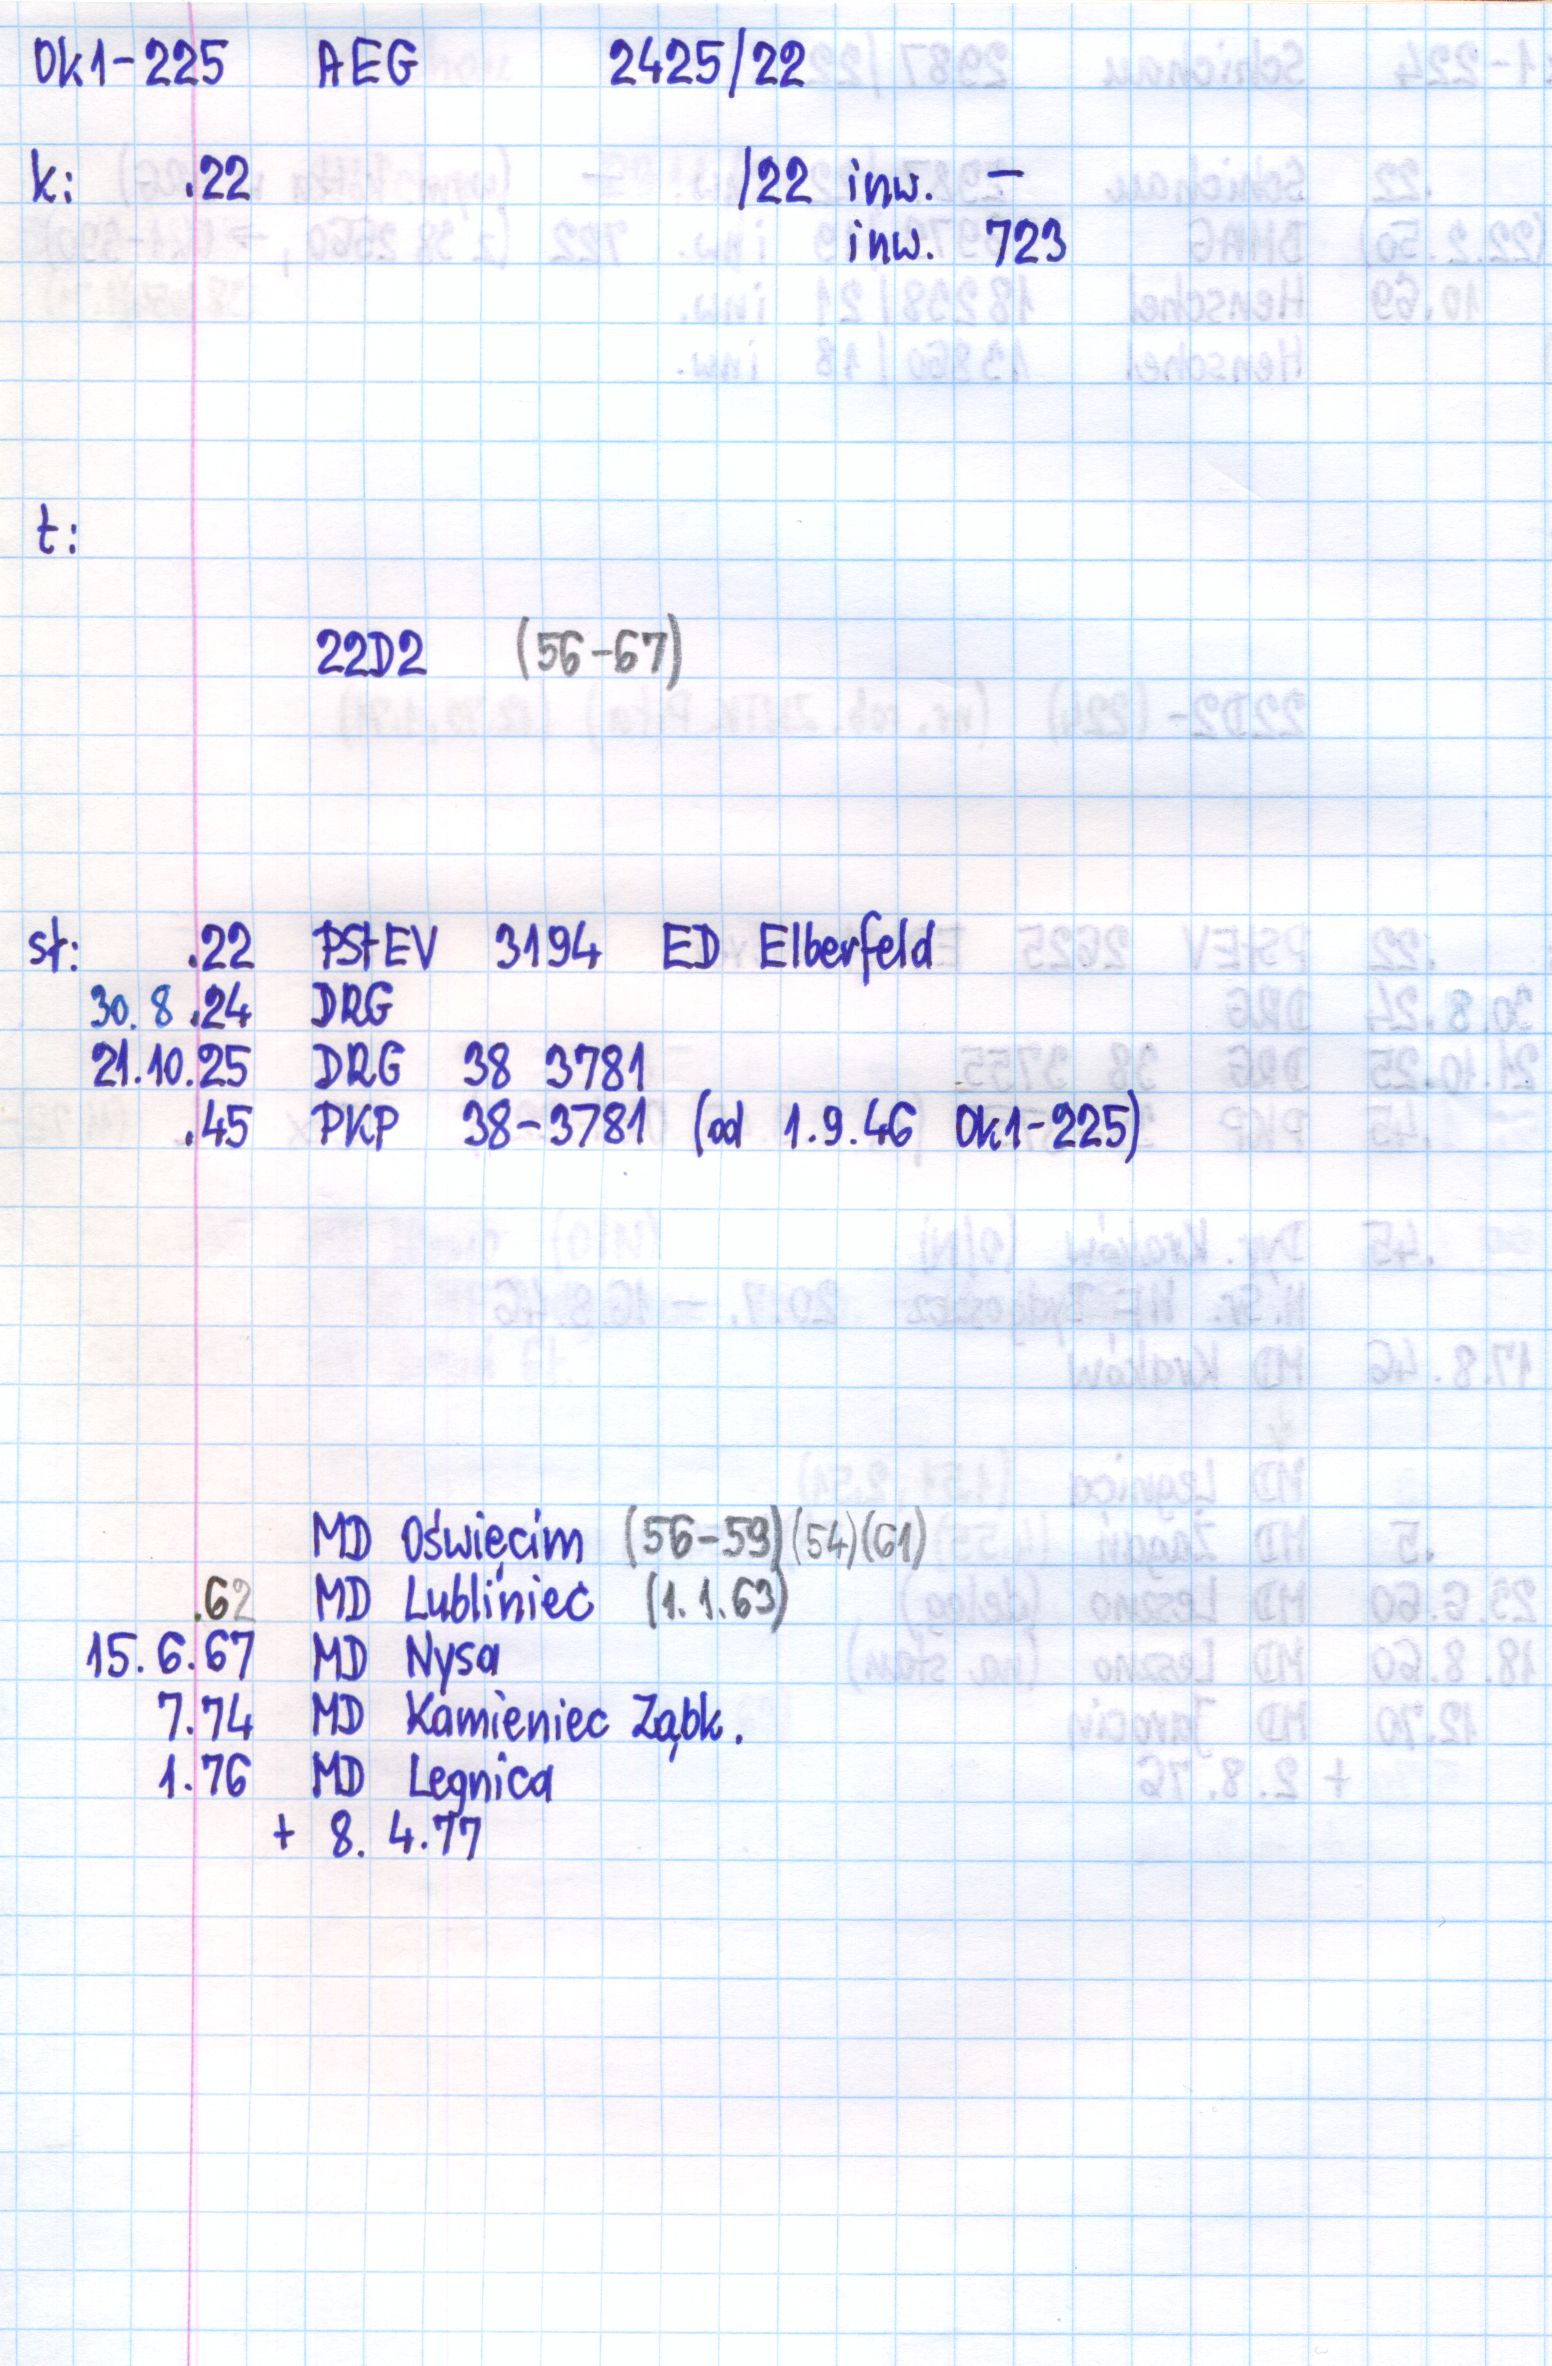 Ok1-225 AEG 2425/22
k: .22 /22 inw. –
inw. 723
t:
22D2 (56-67)
st: .22 PStEV 3194 ED Elberfeld
30.8.24 DRG
21.10.25 DRG 38 3781
.45 PKP 38-3781 (od 1.9.46 Ok1-225)
MD Oświęcim (56-59)(54)(61)
.62 MD Lubliniec (1.1.63)
15.6.67 MD Nysa
7.74 MD Kamieniec Ząbk.
1.76 MD Legnica
+ 8.4.77